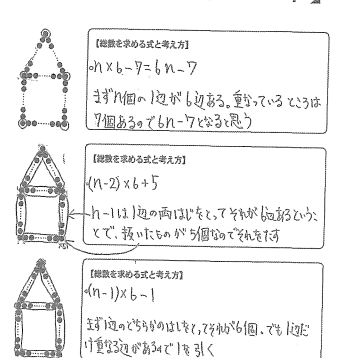 【総数を求める式と考え方】
n×6-7=6n-7
まずn個の1辺が6辺ある。重なっているところは
7個あるので6n-7となると思う
【総数を求める式と考え方】
(n-2)×6+5
n-1は1辺の両はじをとってそれが6辺あるというこ
とで、抜いたものが5個なのでそれをたす
【総数を求める式と考え方】
(n-1)×6-1
まず1辺のどちらかのはしをとってそれが6個、でも1辺だ
け重なる辺があるので1を引く